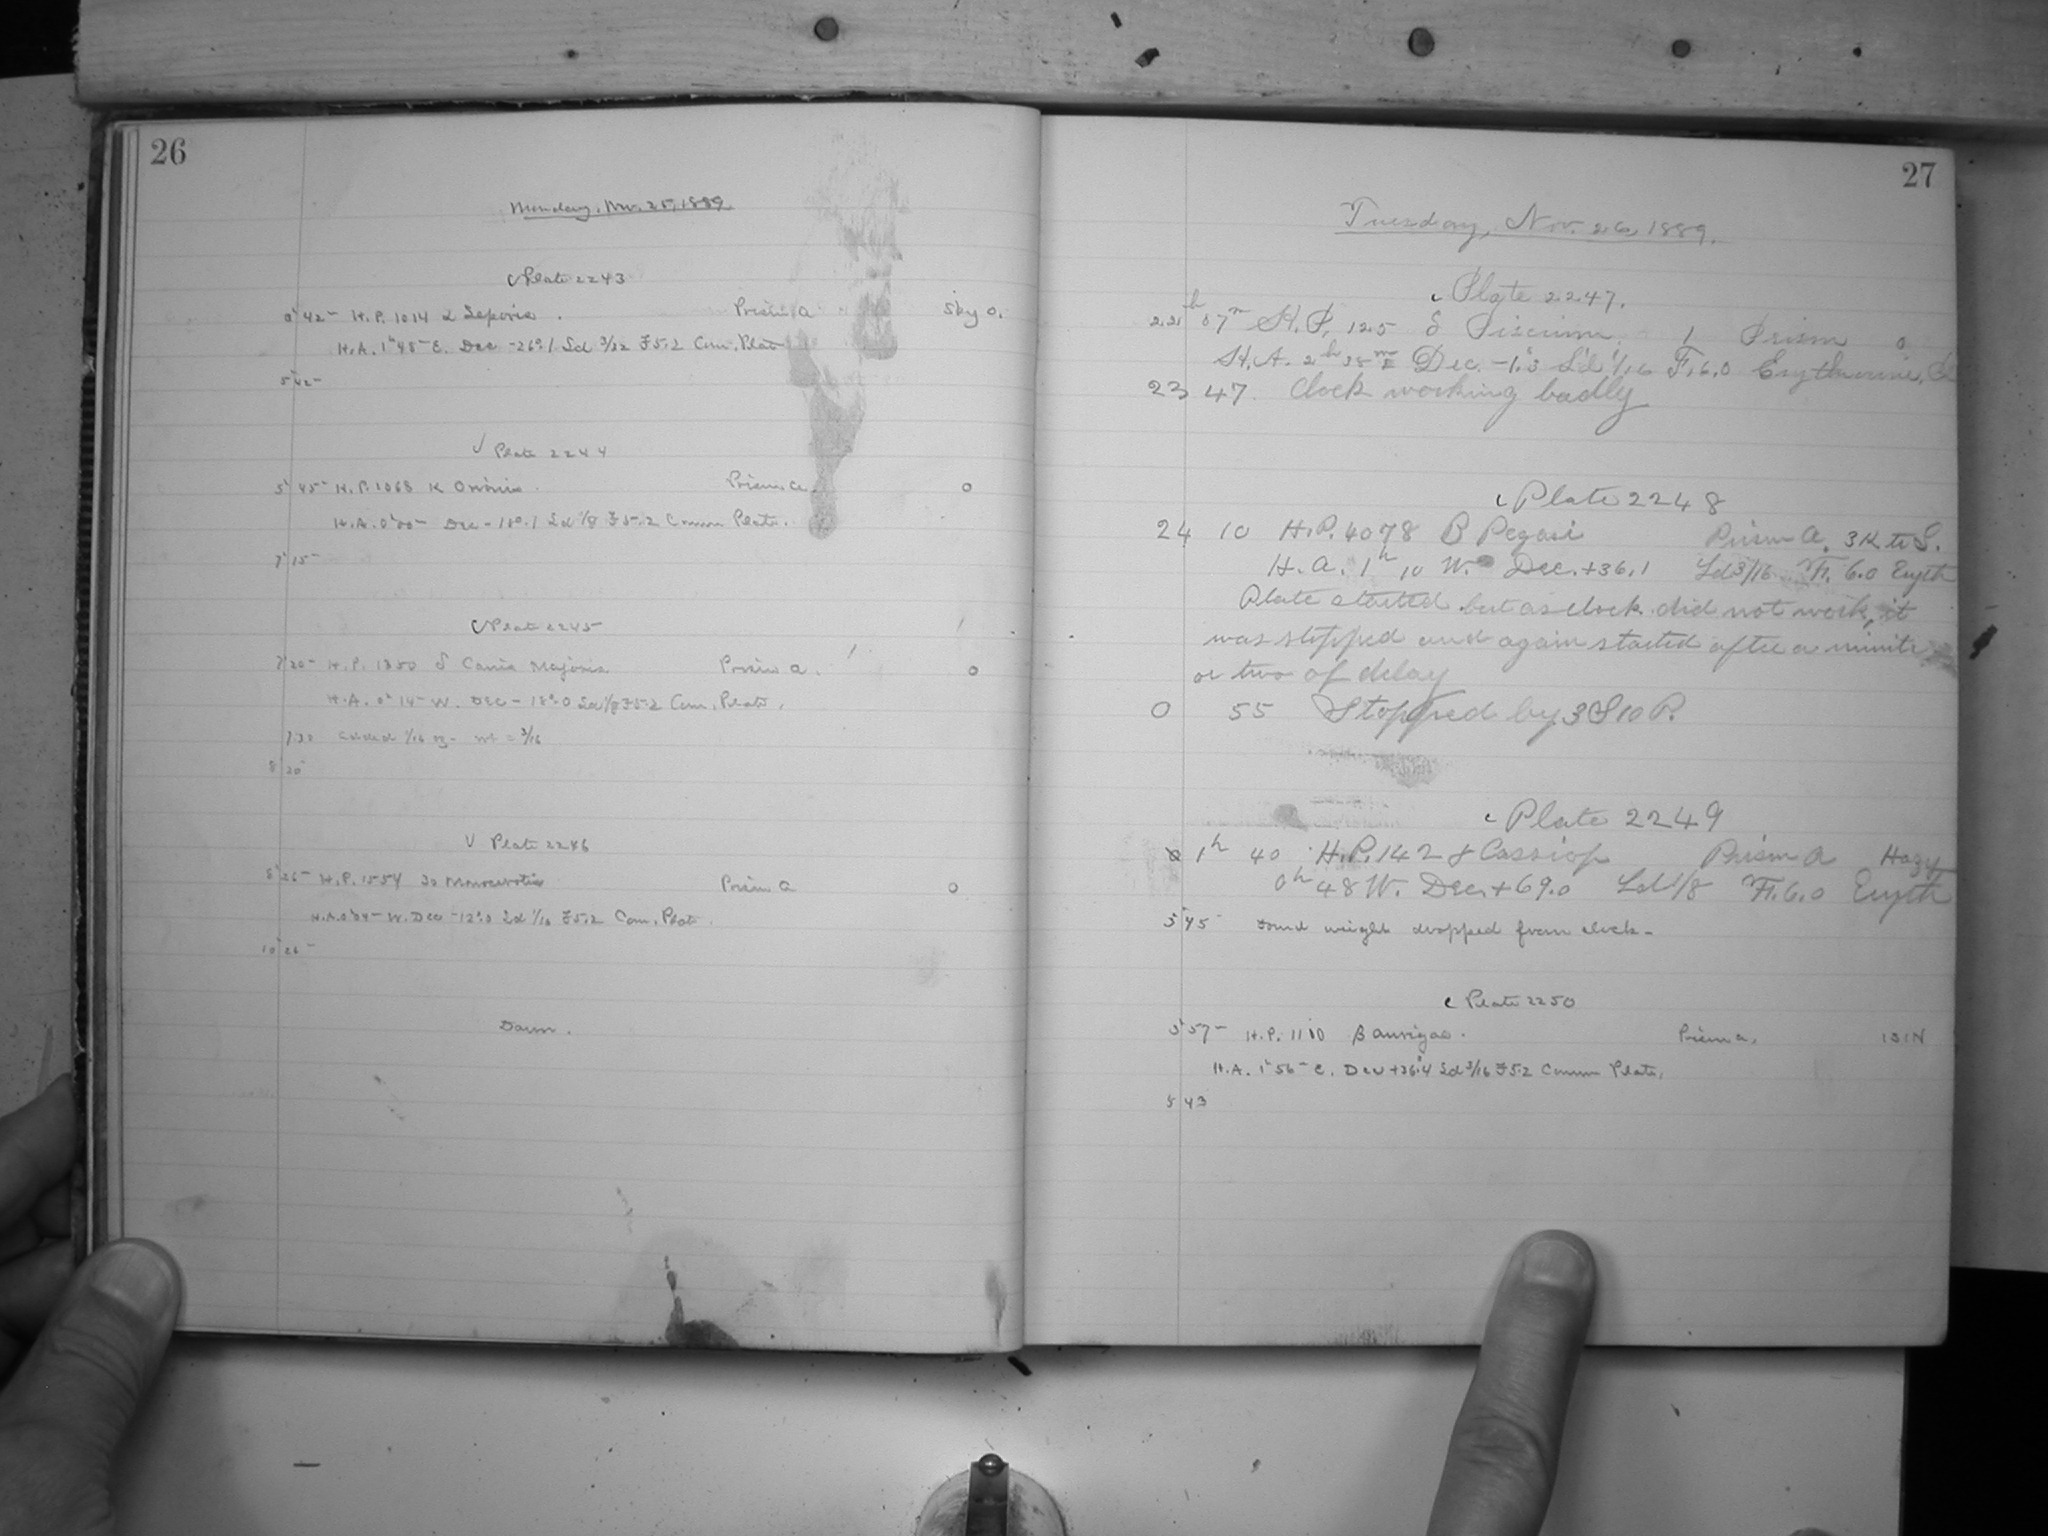 26
Monday, Nov. 25, 1889.
Plate 2243
0 42 H.P. 1014 α Leporis. Prism a Sky 0.
H.A. 1h 45m E. Dec -26°.1 Ld 3/32 F5.2 Com. Plate
5 42
Plate 2244
5 45 H.P. 1068 κ Orionis. Prism a. 0
H.A. 0h 00m Dec -18°.1 Ld 1/8 F5.2 Comm Plate.
7 15
Plate 2245
7 20 H.P. 1350 δ Canis Majoris Prism a. 0
H.A. 0h 14m W. Dec -18°.0 Ld 1/8 F5.2 Com. Plate.
7 30 added 1/16 oz - wt = 3/16
8 20
Plate 2246
8 26 H.P. 1554 30 Monocerotis Prism a 0
W. Dec -12°.0 Ld 1/16 F5.2 Com. Plate.
10 26
Dawn.
27
Tuesday, Nov. 26, 1889.
Plate 2247.
22h 07m H.P. 125 δ Piscium. 1 Prism 0
H.A. 2h 38m E Dec. -1.3 L'd 1/16 F. 6.0 Erythrosine,
23 47. Clock working badly
Plate 2248
24 10 H.P. 4078 β Pegasi Prism A. 3K to S.
H.A. 1h 10 W. Dec. +36.1 Ld 3/16 F. 6.0 Eryth
Plate started but as clock did not work, it
was stopped and again started after a minute
or two of delay
0 55 Stopped by 3 S 10 P.
Plate 2249
1h 40 H.P. 142 γ Cassiop Prism A Hazy
0h 48 W. Dec. +69.0 Ld 1/8 F. 6.0 Eryth
5 45 Found weight dropped from clock-
Plate 2250
5 57 H.P. 1110 β Aurigae. Prism a. 1S1N
H.A. 1h 56m E. Dec +36.4 Ld 3/16 F5.2 Comm Plate.
8 43